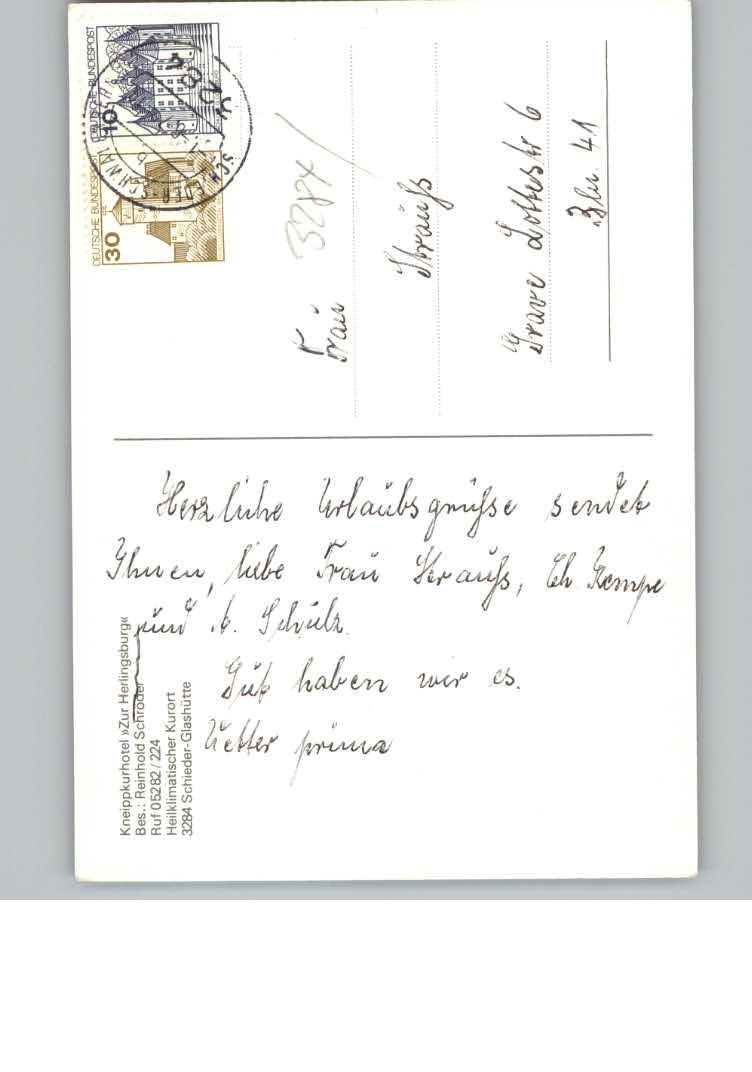 Herzliche Urlaubsgrüße sendet
Ihnen, liebe Frau Strauß, Ch. Kempe
und A. Schulz.
Gut haben wir es.
Wetter prima
Kneippkurhotel »Zur Herlingsburg«
Bes.: Reinhold Schröder
Ruf 05282/224
Heilklimatischer Kurort
3284 Schieder-Glashütte
DEUTSCHE BUNDESPOST
30
DEUTSCHE BUNDESPOST
10
SCHIEDER-SCHWAL
3284
Frau
Strauß
Grave Lottestr 6
Bln. 41